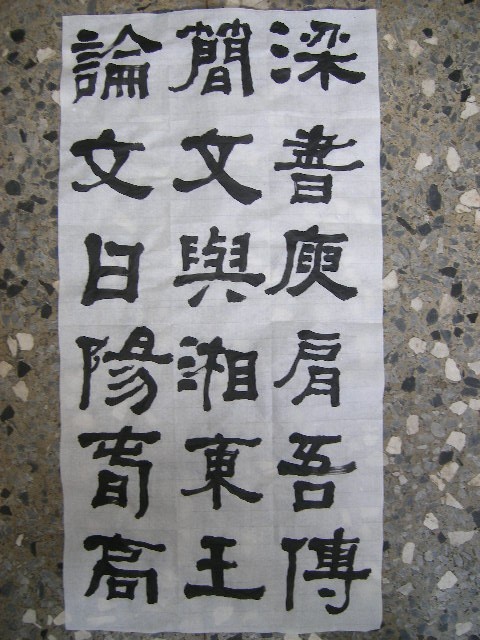 梁書庾肩吾傳
簡文與湘東王
論文曰陽春高